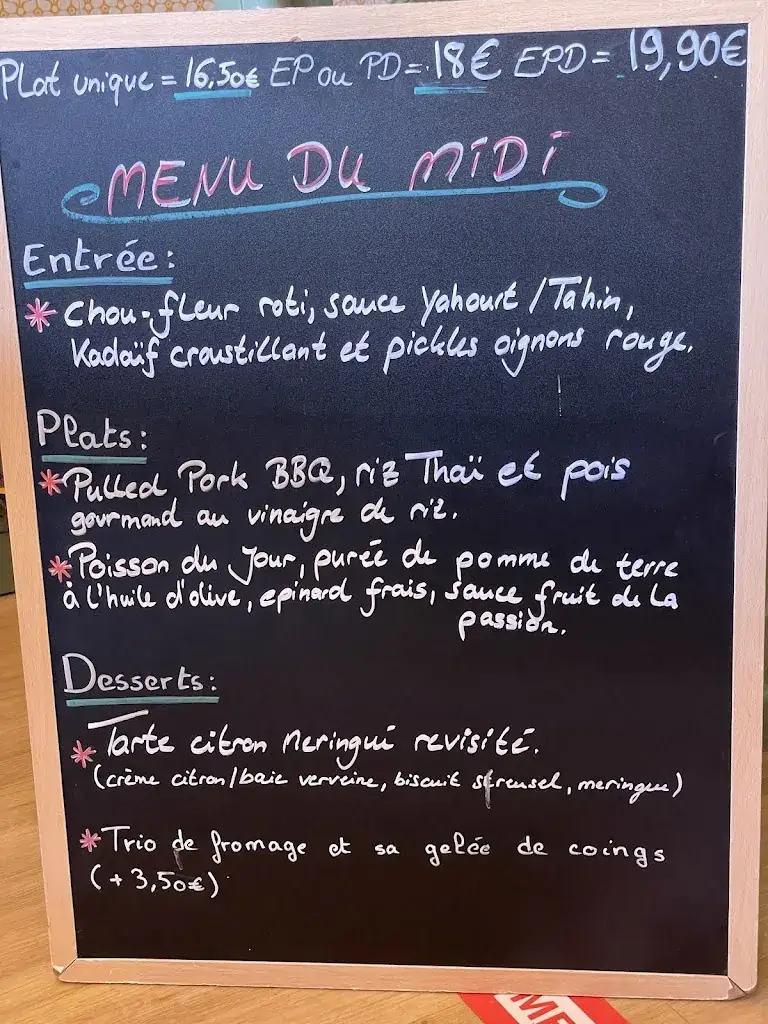 Plat unique = 16,50€ EP ou PD = 18€ EPD = 19,90€
MENU DU MIDI
Entrée :
* Chou-fleur roti, sauce Yahourt / Tahin,
Kadaïf croustillant et pickles oignons rouge.
Plats :
* Pulled Pork BBQ, riz Thaï et pois
gourmand au vinaigre de riz.
* Poisson du Jour, purée de pomme de terre
à l'huile d'olive, epinard frais, sauce fruit de la
passion.
Desserts :
* Tarte citron Meringué revisité.
(crème citron/baie verveine, biscuit streusel, meringue)
* Trio de fromage et sa gelée de coings
(+ 3,50€)